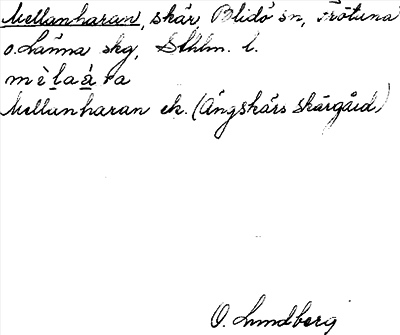 Mellanharan, skär, Blidö sn, Frötuna
o. Länna skg, Sthlm. l.
mèlaára
Mellanharan ek. (Ängskärs skärgård)
O. Lundberg